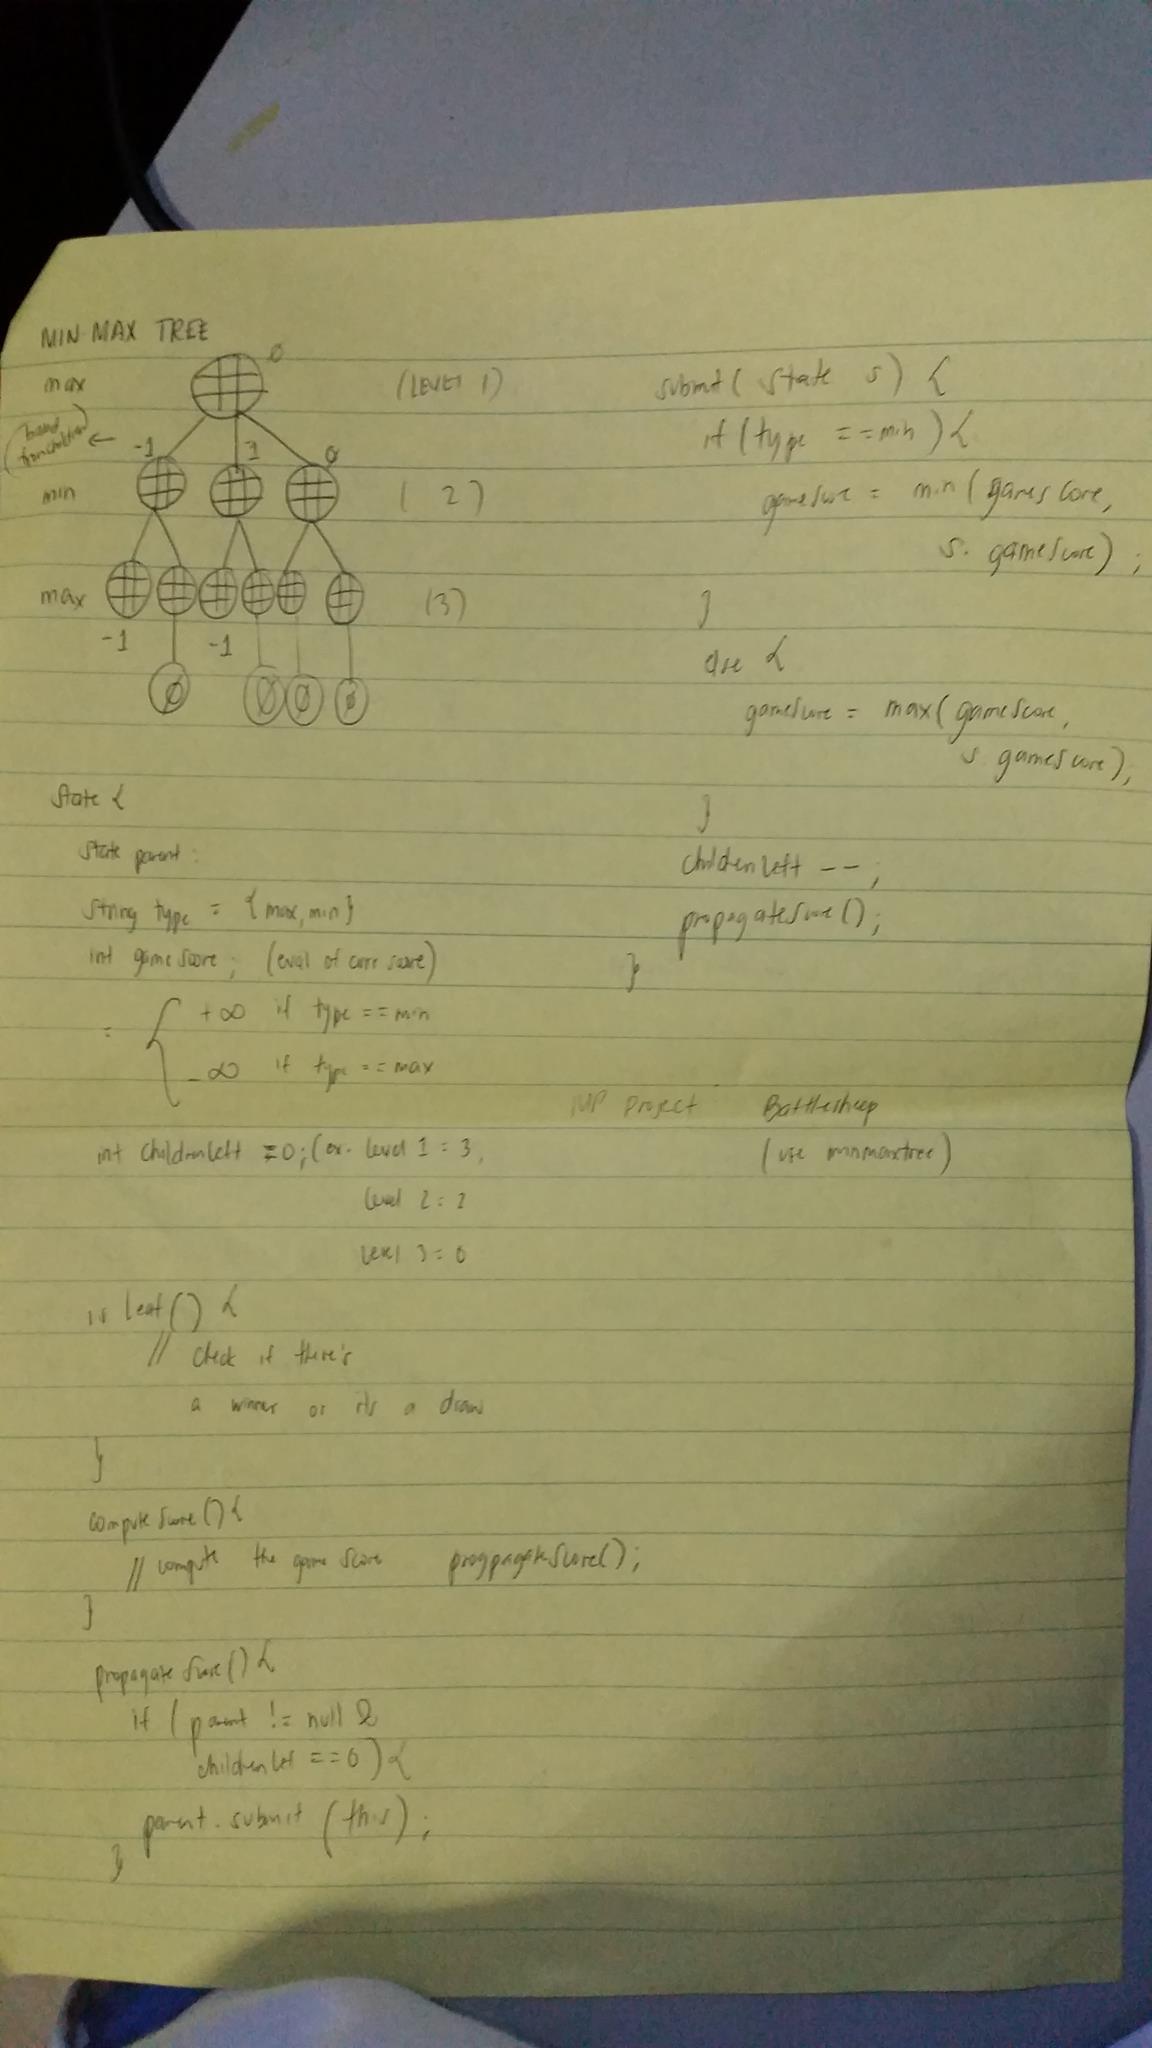 MIN MAX TREE
max
0
(LEVEL 1)
-1
1
0
min
( 2)
max
(3)
-1
-1
0
0
0
0
State {
State parent;
String type = {max, min}
int gameScore; (eval of curr score)
= { +∞ if type == min
-∞ if type == max
int childrenLeft = 0; (ex. Level 1 = 3,
Level 2 = 2
Level 3 = 0
is leaf() {
// check if there's
a winner or its a draw
}
compute Score() {
// compute the game score propagateScore();
}
propagate Score() {
if (parent != null &
childrenLef == 0) {
parent.submit (this);
}
submit( State s) {
if (type == min) {
gameScore = min (gameScore,
s. gameScore);
}
else {
gameScore = max( gameScore,
s. gameScore);
}
childrenLeft --;
propagateScore();
}
MP Project Battlesheep
(use minmaxtree)